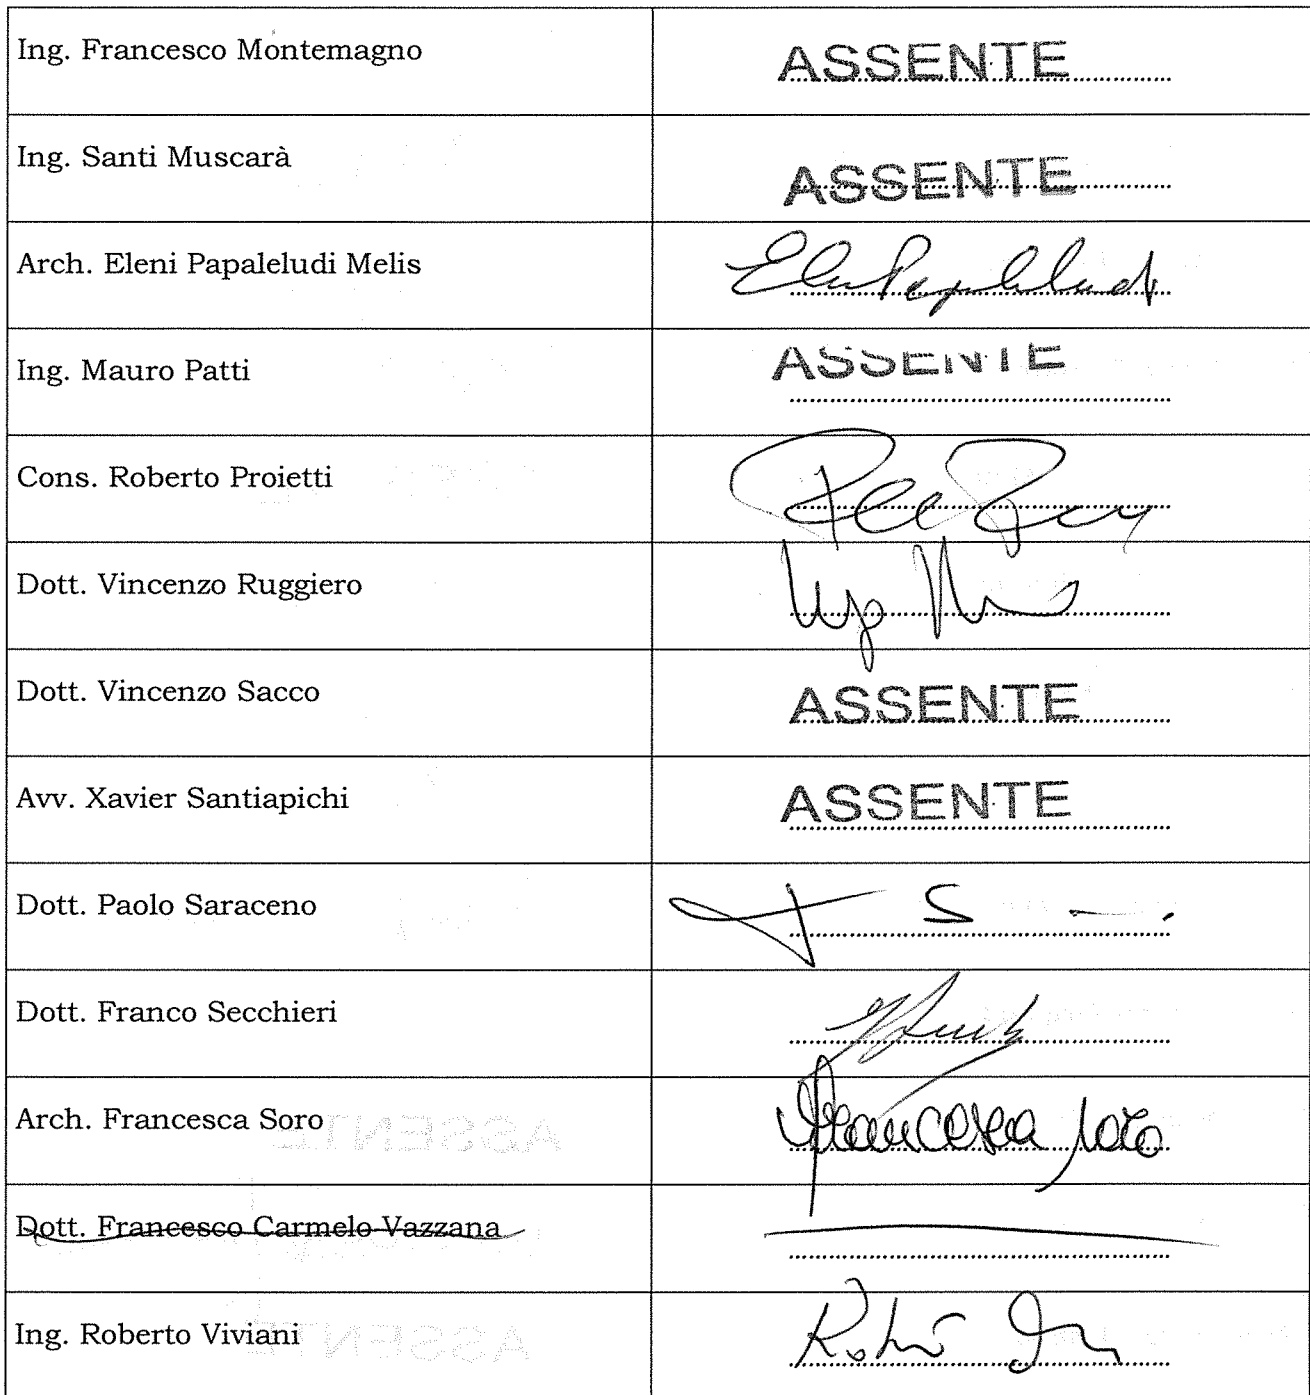 Ing. Francesco Montemagno ASSENTE
Ing. Santi Muscarà ASSENTE
Arch. Eleni Papaleludi Melis
Ing. Mauro Patti ASSENTE
Cons. Roberto Proietti
Dott. Vincenzo Ruggiero
Dott. Vincenzo Sacco ASSENTE
Avv. Xavier Santiapichi ASSENTE
Dott. Paolo Saraceno
Dott. Franco Secchieri
Arch. Francesca Soro Francesca Soro
Dott. Francesco Carmelo Vazzana
Ing. Roberto Viviani